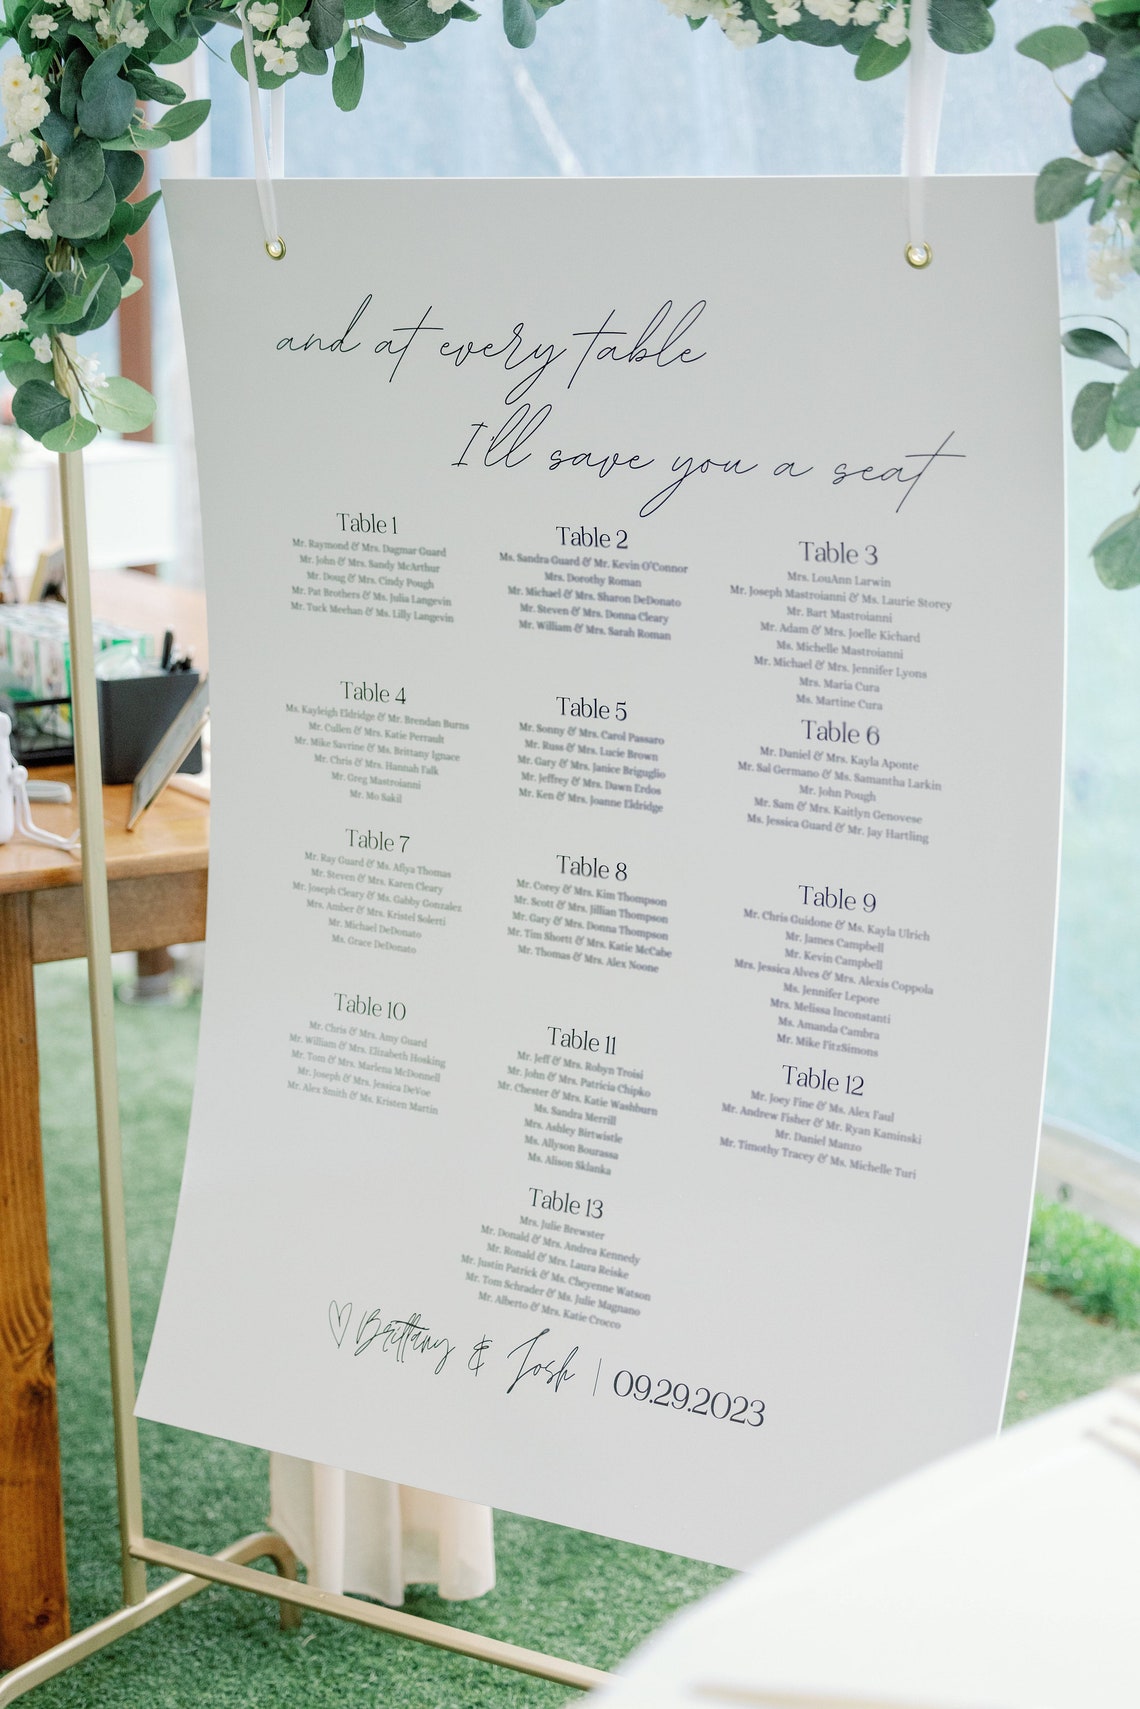 and at every table
I'll save you a seat
Table 1
Mr. Raymond & Mrs. Dagmar Guard
Mr. John & Mrs. Sandy McArthur
Mr. Doug & Mrs. Cindy Pough
Mr. Pat Brothers & Ms. Julia Langevin
Mr. Tuck Meehan & Ms. Lilly Langevin
Table 2
Ms. Sandra Guard & Mr. Kevin O'Connor
Mrs. Dorothy Roman
Mr. Michael & Mrs. Sharon DeDonato
Mr. Steven & Mrs. Donna Cleary
Mr. William & Mrs. Sarah Roman
Table 3
Mrs. LouAnn Larwin
Mr. Joseph Mastroianni & Ms. Laurie Storey
Mr. Bart Mastroianni
Mr. Adam & Mrs. Joelle Kichard
Ms. Michelle Mastroianni
Mr. Michael & Mrs. Jennifer Lyons
Mrs. Maria Cura
Ms. Martine Cura
Table 4
Ms. Kayleigh Eldridge & Mr. Brendan Burns
Mr. Cullen & Mrs. Katie Perrault
Mr. Mike Savrine & Ms. Brittany Ignace
Mr. Chris & Mrs. Hannah Falk
Mr. Greg Mastroianni
Mr. Mo Sakil
Table 5
Mr. Sonny & Mrs. Carol Passaro
Mr. Russ & Mrs. Lucie Brown
Mr. Gary & Mrs. Janice Briguglio
Mr. Jeffrey & Mrs. Dawn Erdos
Mr. Ken & Mrs. Joanne Eldridge
Table 6
Mr. Daniel & Mrs. Kayla Aponte
Mr. Sal Germano & Ms. Samantha Larkin
Mr. John Pough
Mr. Sam & Mrs. Kaitlyn Genovese
Ms. Jessica Guard & Mr. Jay Hartling
Table 7
Mr. Ray Guard & Ms. Afiya Thomas
Mr. Steven & Mrs. Karen Cleary
Mr. Joseph Cleary & Ms. Gabby Gonzalez
Mrs. Amber & Mrs. Kristel Solerti
Mr. Michael DeDonato
Ms. Grace DeDonato
Table 8
Mr. Corey & Mrs. Kim Thompson
Mr. Scott & Mrs. Jillian Thompson
Mr. Gary & Mrs. Donna Thompson
Mr. Tim Shortt & Mrs. Katie McCabe
Mr. Thomas & Mrs. Alex Noone
Table 9
Mr. Chris Guidone & Ms. Kayla Ulrich
Mr. James Campbell
Mr. Kevin Campbell
Mrs. Jessica Alves & Mrs. Alexis Coppola
Ms. Jennifer Lepore
Mrs. Melissa Inconstanti
Ms. Amanda Cambra
Mr. Mike FitzSimons
Table 10
Mr. Chris & Mrs. Amy Guard
Mr. William & Mrs. Elizabeth Hosking
Mr. Tom & Mrs. Marlena McDonnell
Mr. Joseph & Mrs. Jessica DeVoe
Mr. Alex Smith & Ms. Kristen Martin
Table 11
Mr. Jeff & Mrs. Robyn Troisi
Mr. John & Mrs. Patricia Chipko
Mr. Chester & Mrs. Katie Washburn
Ms. Sandra Merrill
Mrs. Ashley Birtwistle
Ms. Allyson Bourassa
Ms. Alison Sklanka
Table 12
Mr. Joey Fine & Ms. Alex Faul
Mr. Andrew Fisher & Mr. Ryan Kaminski
Mr. Daniel Manzo
Mr. Timothy Tracey & Ms. Michelle Turi
Table 13
Mrs. Julie Brewster
Mr. Donald & Mrs. Andrea Kennedy
Mr. Ronald & Mrs. Laura Reiske
Mr. Justin Patrick & Ms. Cheyenne Watson
Mr. Tom Schrader & Ms. Julie Magnano
Mr. Alberto & Mrs. Katie Crocco
Brittany & Josh | 09.29.2023